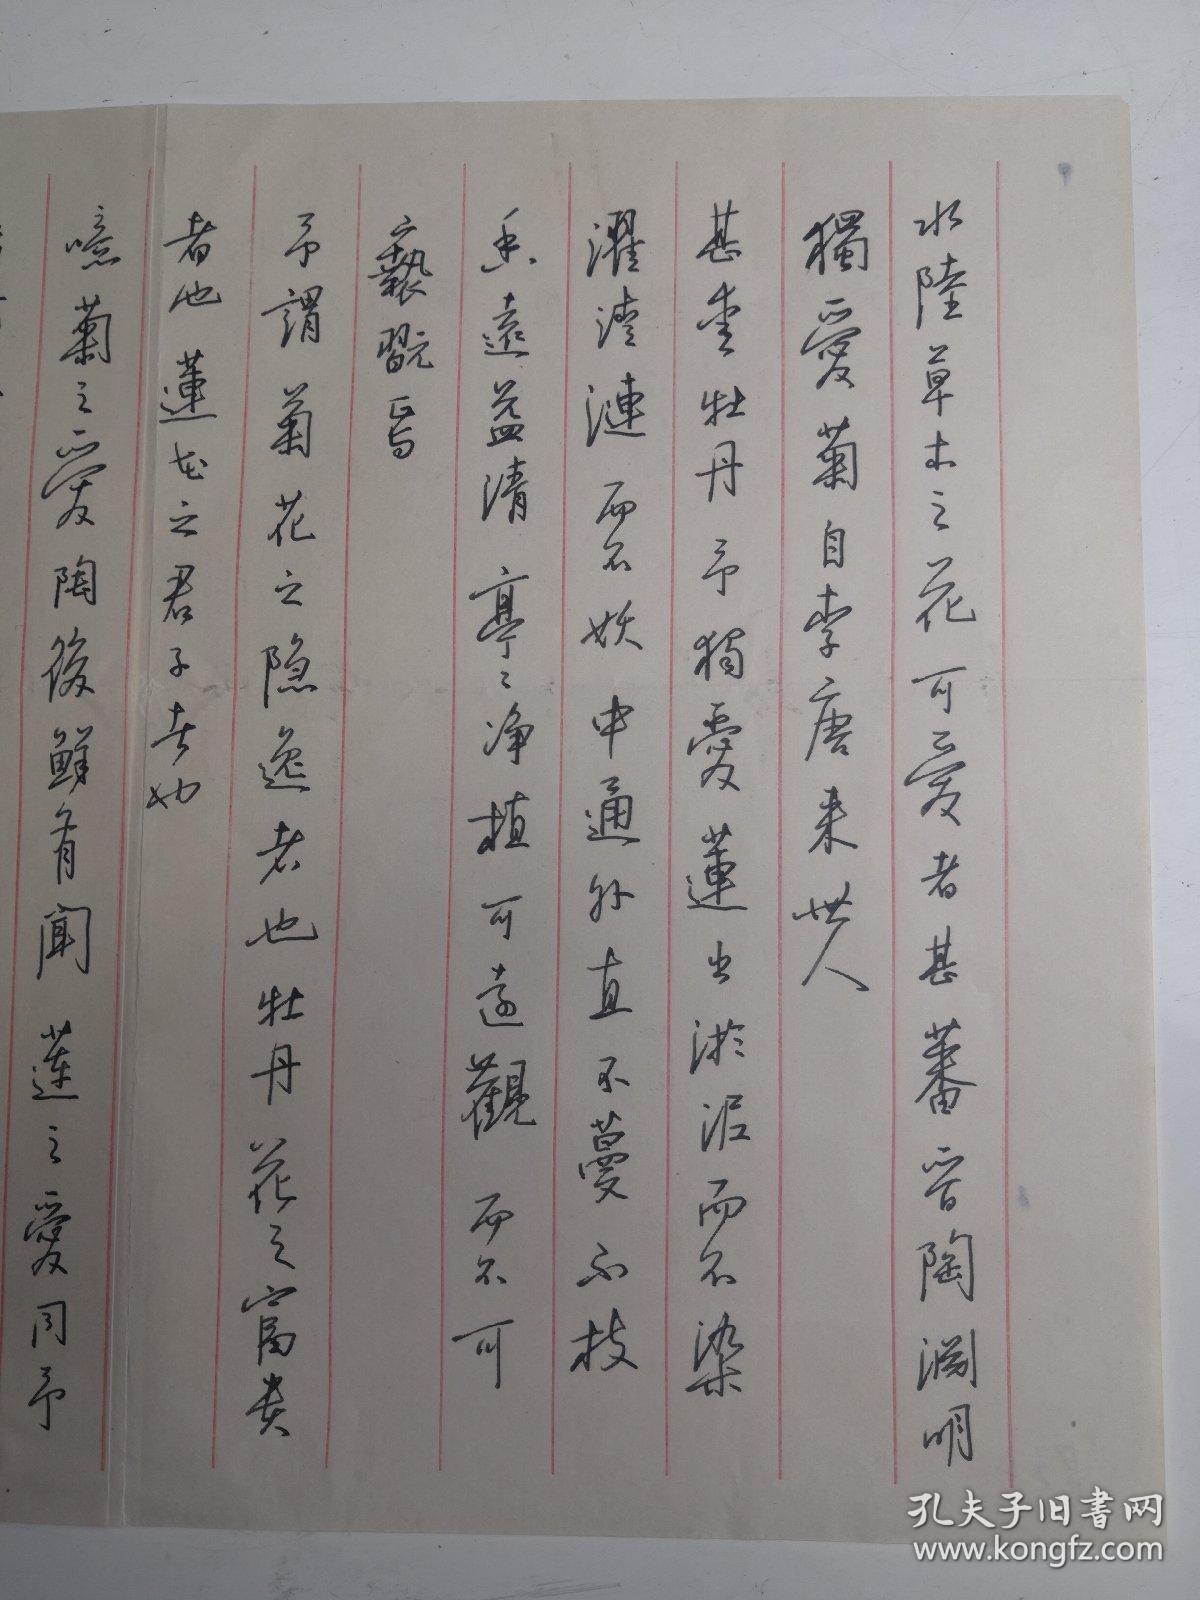 水陸草木之花可愛者甚蕃晉陶淵明
獨愛菊自李唐来世人
甚愛牡丹予獨愛蓮出淤泥而不染
濯清漣而不妖中通外直不蔓不枝
香遠益清亭亭净植可遠觀而不可
褻翫焉
予謂菊花之隐逸者也牡丹花之富贵
者也蓮花之君子者也
噫菊之愛陶後鮮有聞蓮之愛同予
孔夫子旧書网
www.kongfz.com